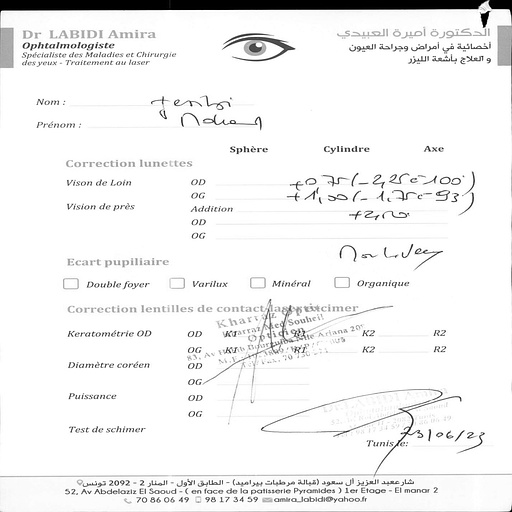 Dr LABIDI Amira
Ophtalmologiste
Spécialiste des Maladies et Chirurgie
des yeux - Traitement au laser
الدكتورة أميرة العبيدي
أخصائية في أمراض وجراحة العيون
و العلاج بأشعة الليزر
Nom :
Prénom :
Sphère Cylindre Axe
Correction lunettes
Vison de Loin OD +0,75 (-2,25 à 100°)
OG +1,00 (-1,75 à 93)
Vision de près Addition +2,
OD
OG
Ecart pupillaire
Double foyer Varilux Minéral Organique
Correction lentilles de contact
Keratométrie OD OD K1 R1 K2 R2
OG K1 R1 K2 R2
Diamètre coréen OD
OG
Puissance OD
OG
Test de schimer
Kharraz Optic
Kharraz Med Souheil
Opticien
Tunis le: 23/06/23
شارع عبد العزيز آل سعود (قبالة مرطبات بيراميد) - الطابق الأول - المنار 2 - 2092 تونس
52, Av Abdelaziz El Saoud - ( en face de la patisserie Pyramides ) 1er Etage - El manar 2
70 86 06 49 98 17 34 59 amira_labidi@yahoo.fr